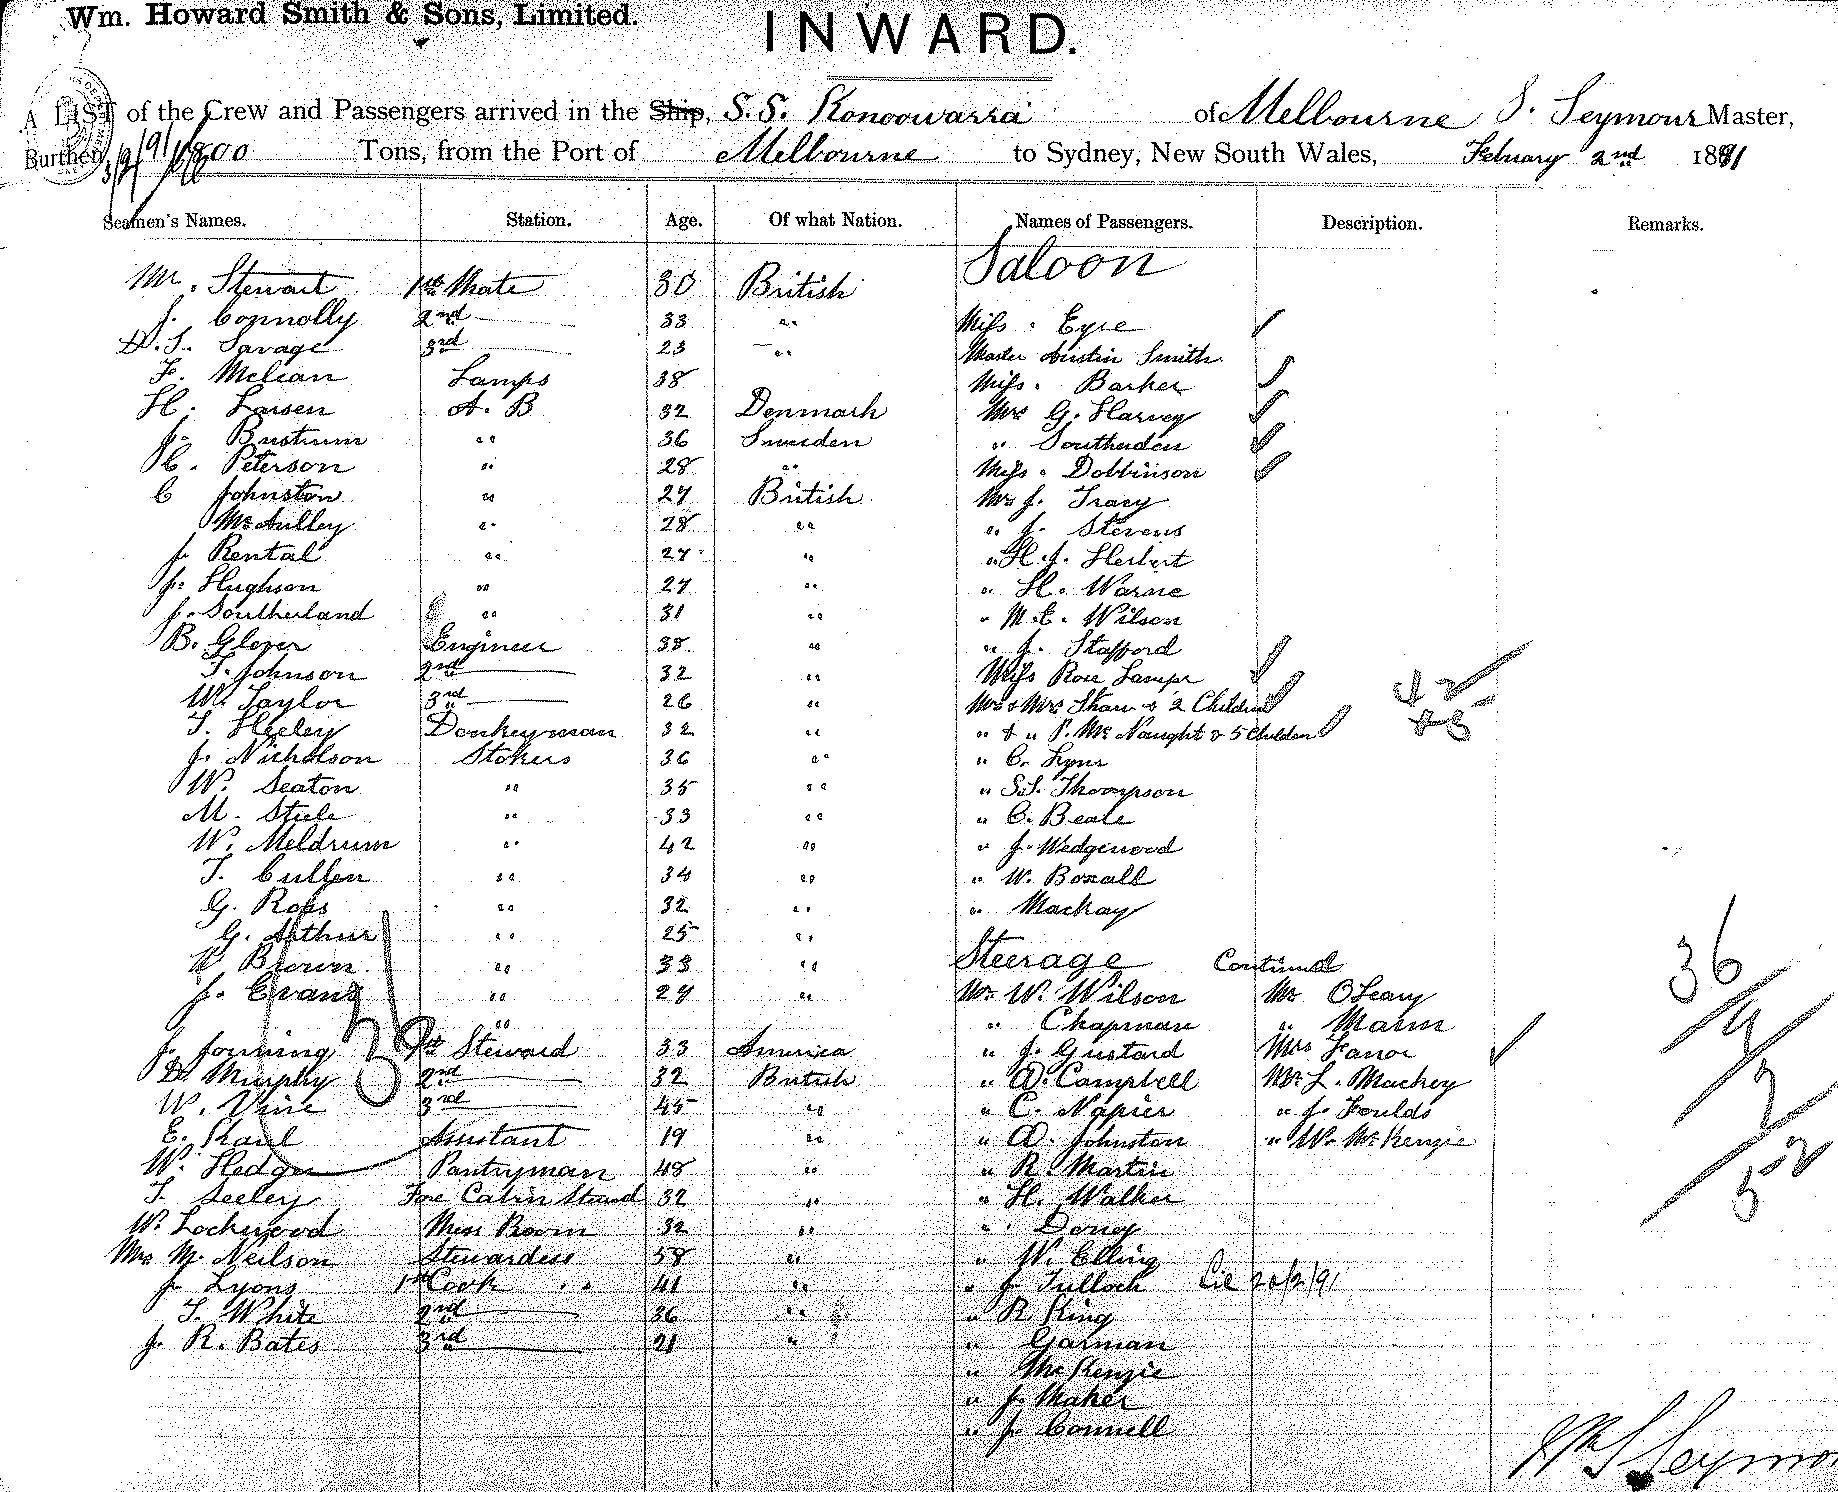 Wm. Howard Smith & Sons, Limited.
INWARD.
A LIST of the Crew and Passengers arrived in the Ship, S.S. Konoowarra of Melbourne S. Seymour Master,
Burthen 1800 Tons, from the Port of Melbourne to Sydney, New South Wales, Febuary 2nd 1891
Seamen's Names. Station. Age. Of what Nation. Names of Passengers. Description. Remarks.
Saloon
Mr. Stewart 1st Mate 30 British
J. Connolly 2nd 33 " Miss. Eyre
D. S. Savage 23 " Master Austin Smith
3rd
F. McLean Lamps 38 Miss. Barker
H. Larsen A. B 32 Denmark Mrs G. Harvey
J. Bustrum " 36 Sweeden " Southerden
C. Peterson " 28 " Miss. Dobbinson
C Johnston " 27 British Mr J. Tracy
McAulley " 28 " " J. Stevens
J. Rental " 27 " " H. J. Herbert
J. Hughson " 27 " " H. Warne
J. Southerland " 31 " " M. E. Wilson
B. Glover Engineer 38 " " J. Stafford
T. Johnson 2nd 32 " Miss Rose
W. Taylor 3rd 26 " Mr & Mrs Shaw & 2 Children
T. Heeley Donkeyman 32 " " & " P. McNaught & 5 Children
42
J. Nicholson Stokers 36 " " C. Lyne
W. Seaton " 35 " " S.S. Thompson
M. Steele " 33 " " C. Beale
W. Meldrum " 42 " " J. Wedgewood
T. Cullen " 34 " " W. Boxall
G. Ross " 32 " " Mackay
G. Arthur " 25 "
Brown " 33 " Steerage Continued
36
J. Evans " 27 " Mr W. Wilson Mr OLeary
" " Chapman " Mann
J. Jorning 1st Steward 33 America " J. Gustard Mrs Fanor
D. Murphy 2nd 32 British " D. Campbell Mr L. Mackey
W. Vine 3rd 45 " " C. Napier " J. Foulds
36
E. Kaul Assistant 19 " " D. Johnston " W. McKenzie
W. Hedger Pantryman 48 " " R. Martin
T. Seeley Fore Cabin Steward 32 " " H. Walker
W. Lockwood Mess Room 32 " " Doney
Mrs M. Neilson Stewardess 58 " " W. Elling
J. Lyons 1st Cook 41 " " J Tulloch 20/2/91
T. White 2nd 36 " " R King
J. R. Bates 3rd 21 " " Garman
" McKenzie
" J. Maher
" J. Connell
S Seymour